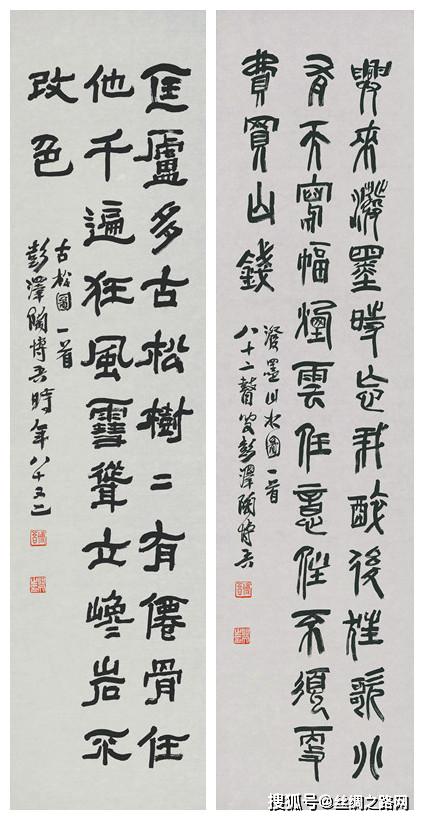 興來潑墨時忘我醉後狂歌小
有天寫幅煙雲任意不須更
費買山錢
潑墨山水圖一首
八十二瞽叟彭澤陶博吾
匡廬多古松樹二有僊骨任
他千遍狂風雪聳立巉岩不
改色
古松圖一首
彭澤陶博吾時年八十又二
搜狐号@丝绸之路网